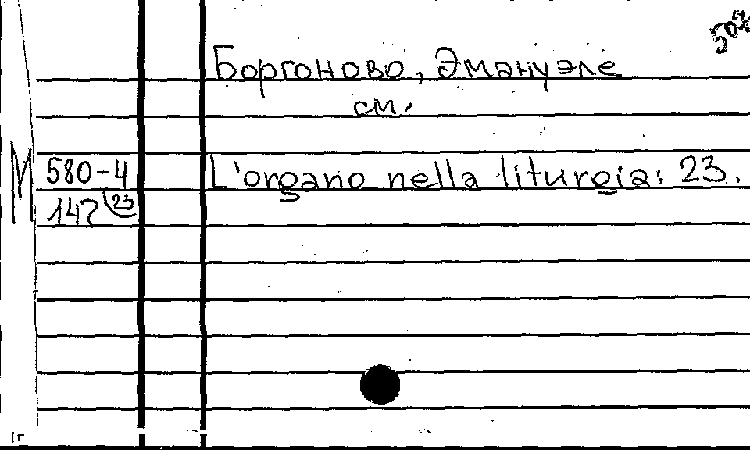 Боргоново, Эмануэле
см.
М 580-4 L'organo nella liturgia: 23.
147 23